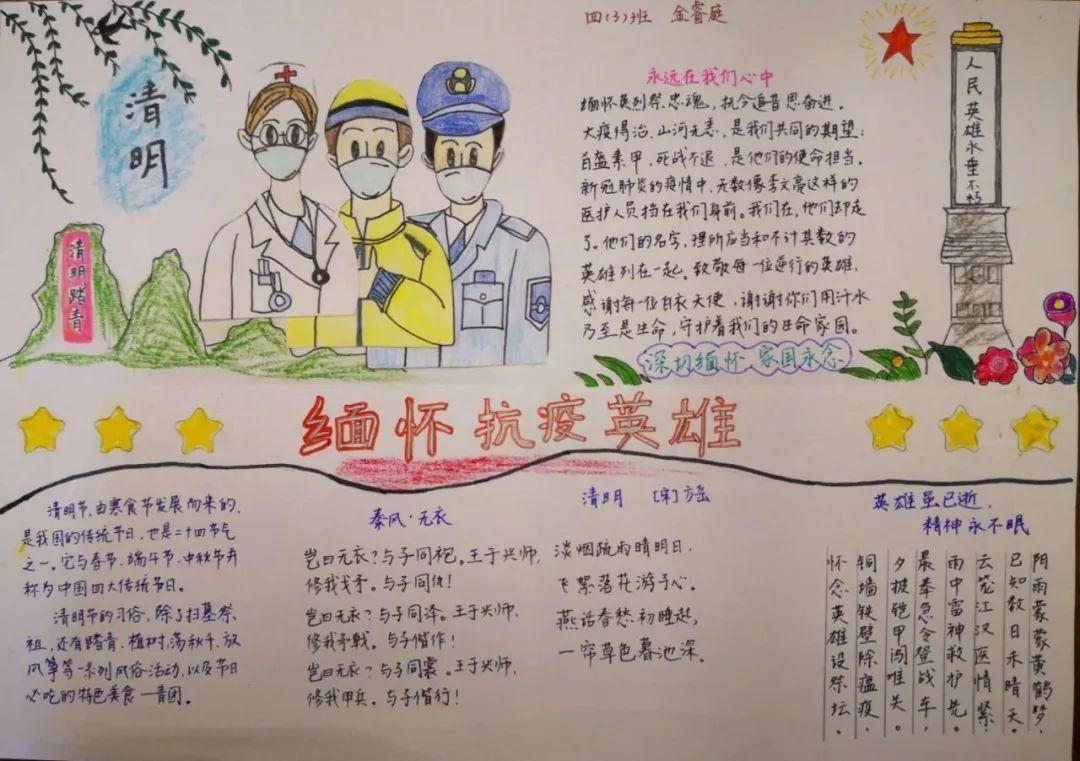 四(3)班 金睿庭
清明
清明踏青
永远在我们心中
缅怀英烈祭忠魂，抗今追昔思奋进。
大疫得治、山河无恙，是我们共同的期望；
白盔素甲，死战不退，是他们的使命担当。
新冠肺炎的疫情中，无数像李文亮这样的
医护人员挡在我们身前。我们在，他们却走
了。他们的名字，理所应当和不计其数的
英雄列在一起。致敬每一位逆行的英雄，
感谢每一位白衣天使，谢谢你们用汗水
乃至是生命，守护着我们的生命家园。
深切缅怀 家国永念
人民英雄永垂不朽
缅怀抗疫英雄
清明节，由寒食节发展而来的，
是我国的传统节日，也是二十四节气
之一。它与春节、端午节、中秋节并
称为中国四大传统节日。
清明节的习俗，除了扫墓祭
祖，还有踏青、植树、荡秋千、放
风筝等一系列风俗活动，以及节日
必吃的特色美食—青团。
秦风·无衣
岂曰无衣？与子同袍。王于兴师，
修我戈矛。与子同仇！
岂曰无衣？与子同泽。王于兴师，
修我矛戟。与子偕作！
岂曰无衣？与子同裳。王于兴师，
修我甲兵。与子偕行！
清明 [宋]方岳
淡烟疏雨晴明日，
飞絮落花游子心。
燕话春愁初睡起，
一帘草色暮池深。
英雄虽已逝，
精神永不眠
阴雨蒙蒙黄鹤梦，
已知数日未晴天。
云笼江汉医情紧，
雨中雷神救护先。
最奉急令登战车，
夕披铠甲闯唯关。
铜墙铁壁除瘟疫，
怀念英雄设祭坛。